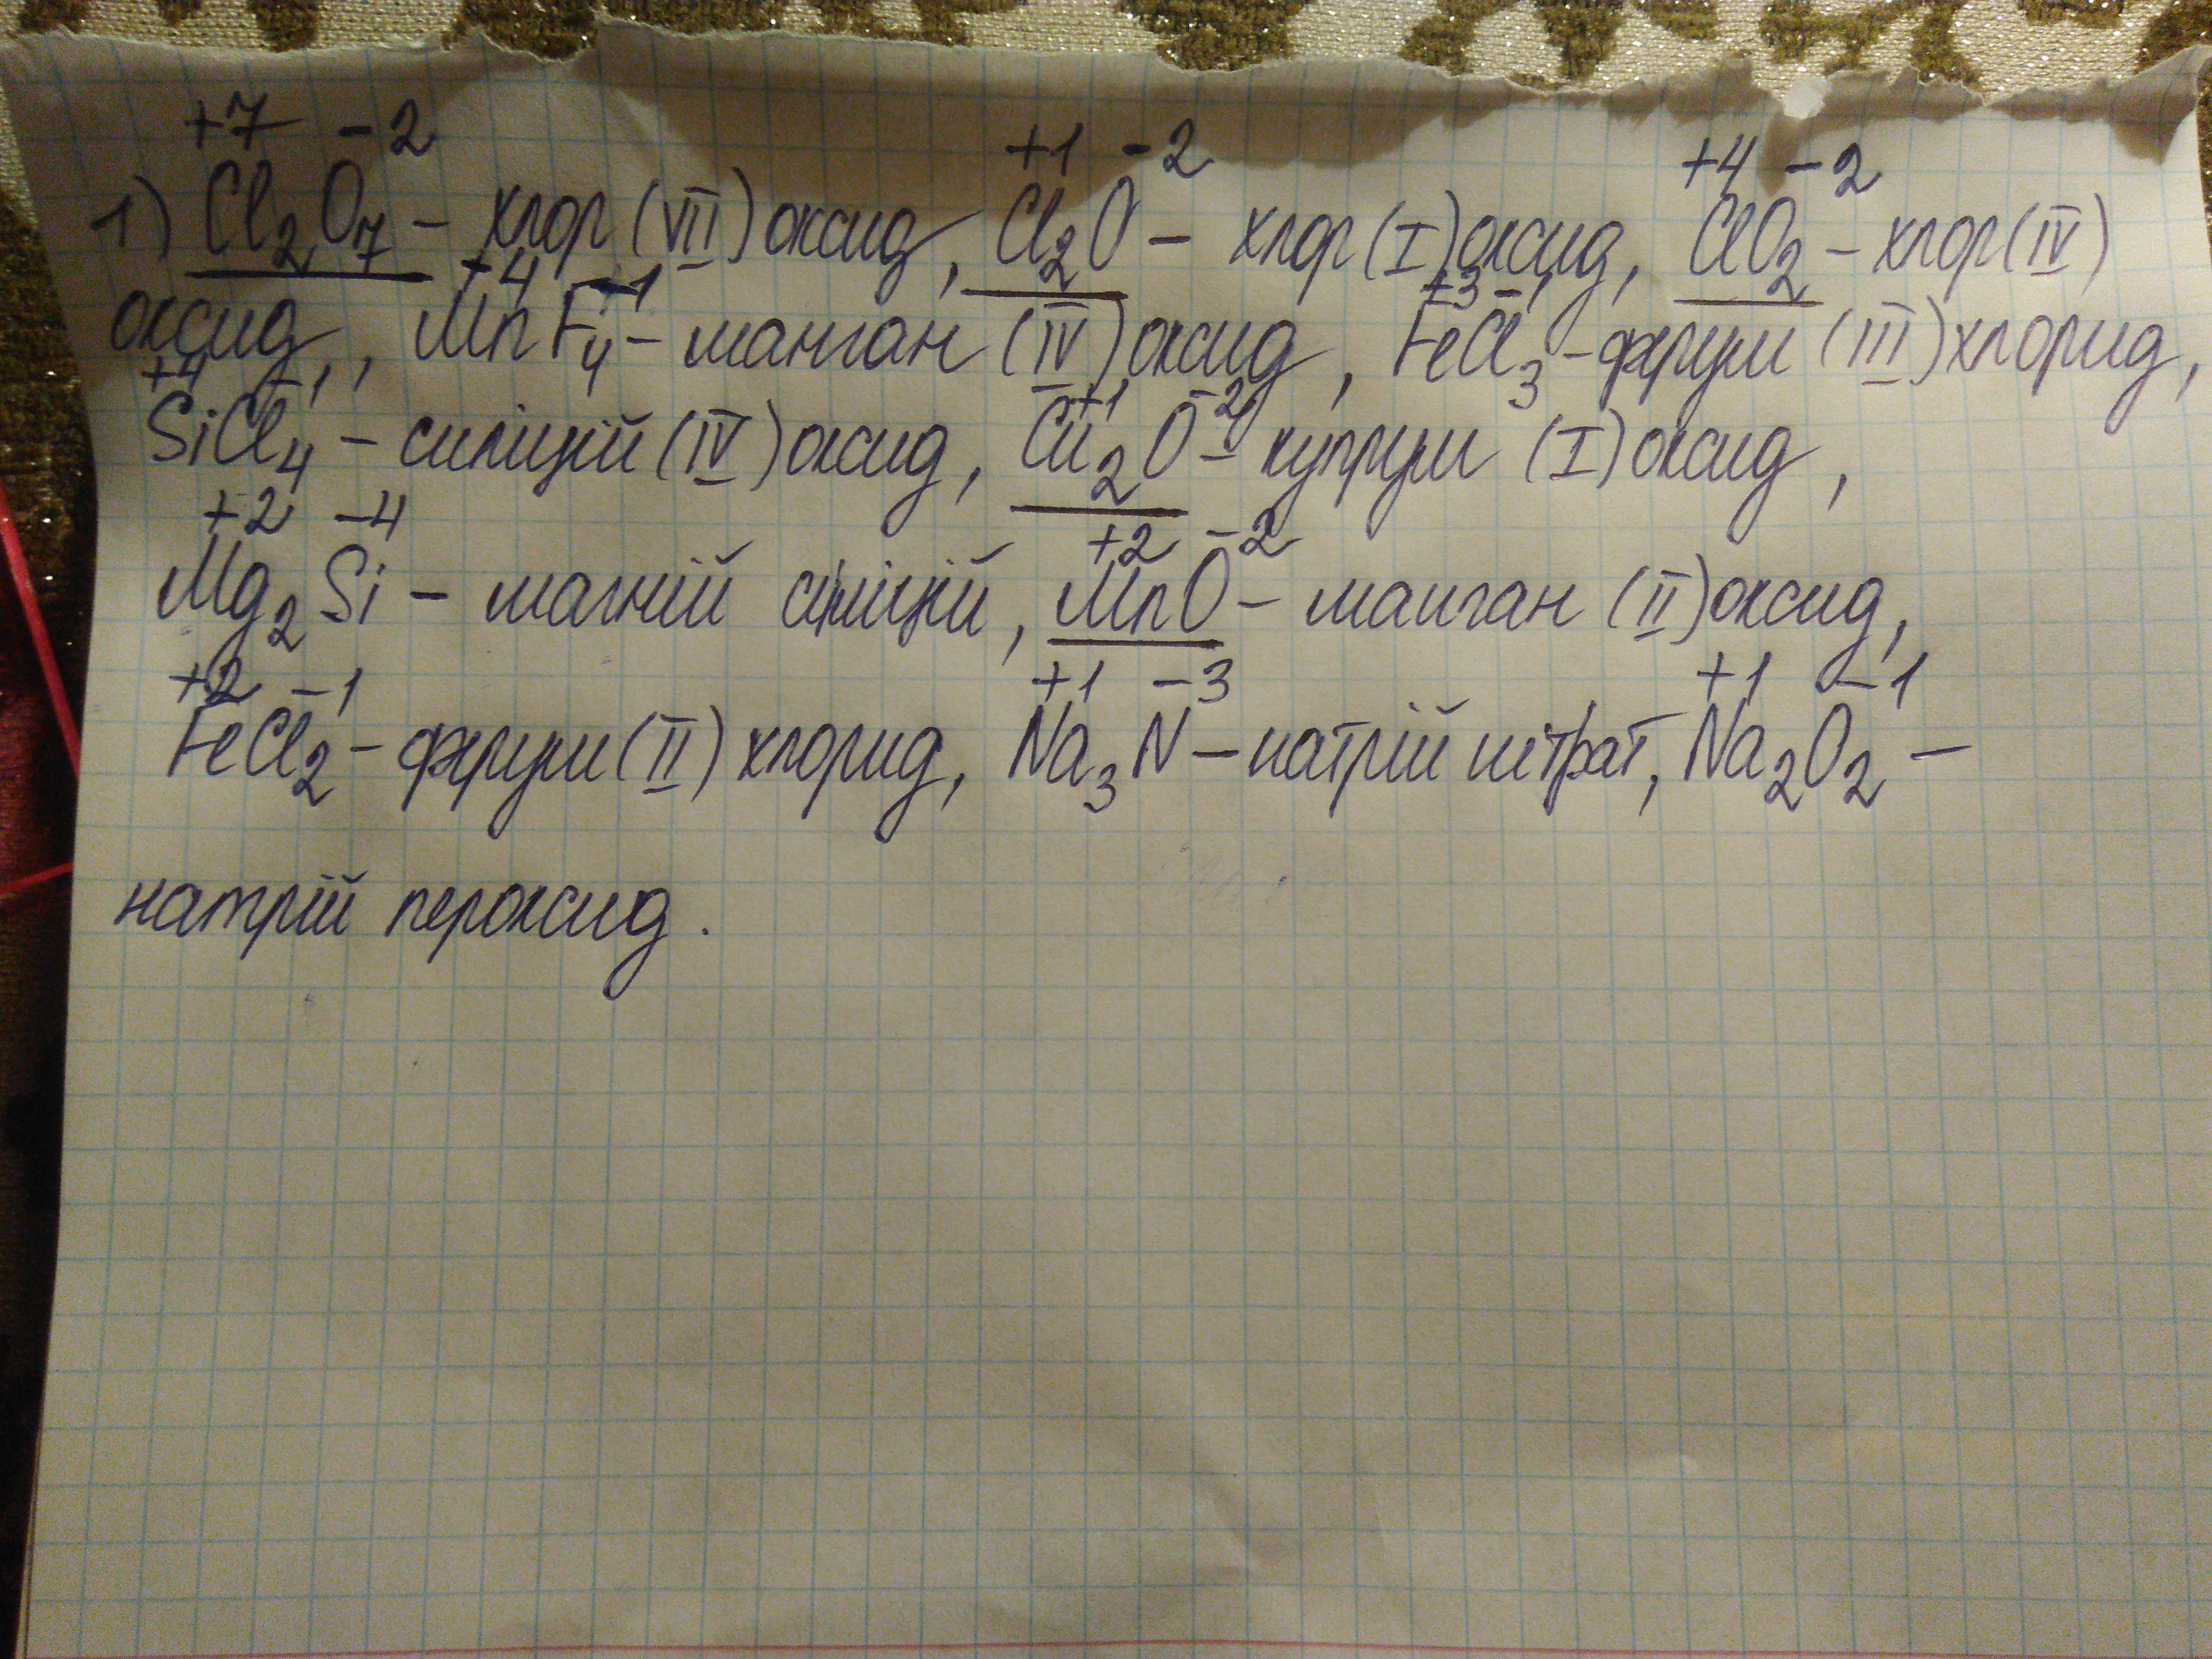 +7 -2 +1 -2 +4 -2
1) Cl2O7 - хлор (VII) оксид, Cl2O - хлор (I) оксид, ClO2 - хлор (IV)
+4 -1 +3 -1
оксид, , MnF4 - манган (IV) оксид, FeCl3 - ферум (III) хлорид,
+4 -1 +1 -2
SiCl4 - силіцій (IV) оксид, Cu2O - купрум (I) оксид,
+2 -4 +2 -2
Mg2Si - магній сіліцій, MnO - манган (II) оксид,
+2 -1 +1 -3 +1 -1
FeCl2 - ферум (II) хлорид, Na3N - натрій нітрат, Na2O2 -
натрій пероксид.